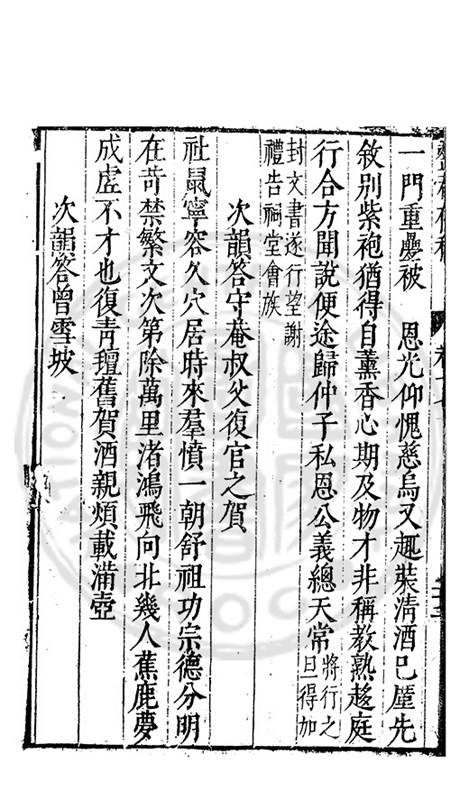 一門重慶被　恩光仰愧慈烏又趣裝清酒已厪先
敘別紫袍猶得自薰香心期及物才非稱教熟趍庭
行合方聞說便途歸仲子私恩公義總天常將行之旦得加
封文書遂行望謝禮告祠堂會族
次韻答守菴叔父復官之賀
社鼠寧容久穴居時來羣憤一朝舒祖功宗德分明
在苛禁繁文次第除萬里渚鴻飛向北幾人蕉鹿夢
成虛不才也復青氊舊賀酒親煩載滿壺
次韻答曾雪坡